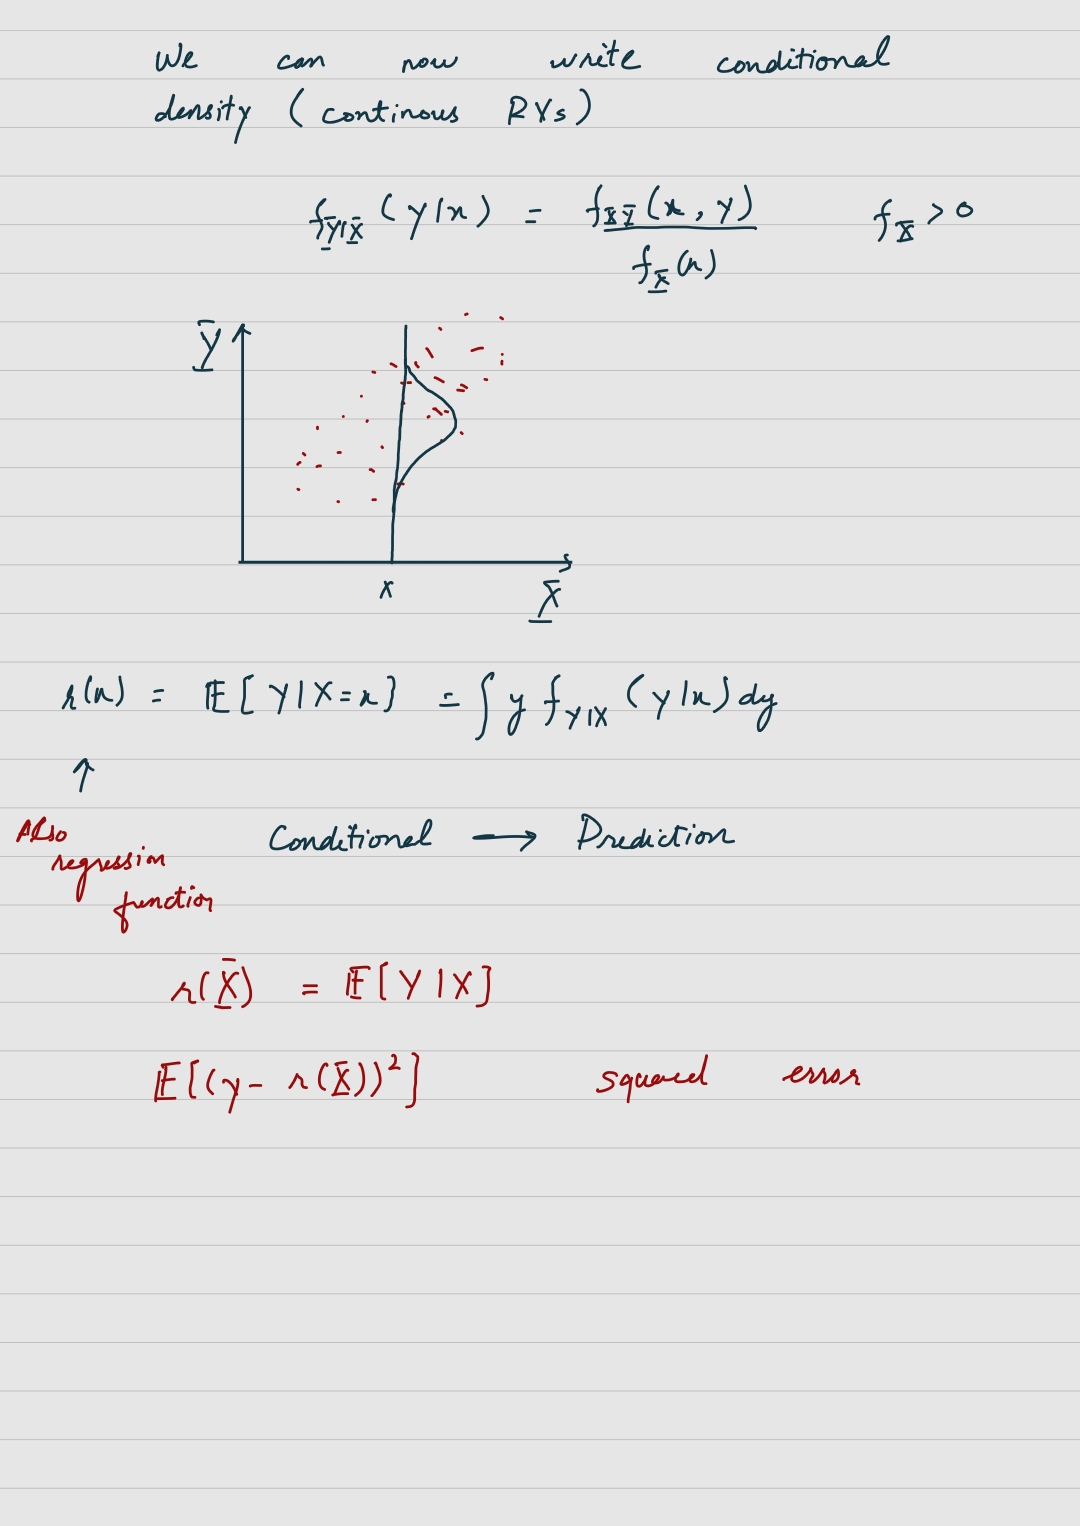 We can now write conditional
density (continous RVs)
f_Y|X (y|x) = f_XY (x, y) / f_X (x)    f_X > 0
Y
x
X
r(x) = 𝔼[Y|X=x] = ∫ y f_Y|X (y|x) dy
↑
Also
regression
function
Conditional ⟶ Prediction
r(X) = 𝔼[Y|X]
𝔼[(y - r(X))²]    squared error